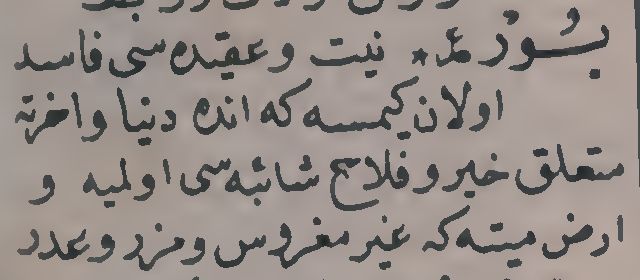 بُور * نيت و عقيده سى فاسد
اولان كيمسه كه انده دنيا واخرته
متعلق خير و فلاح شائبه سى اولميه و
ارض ميته كه غير مغروس ومزروعدر